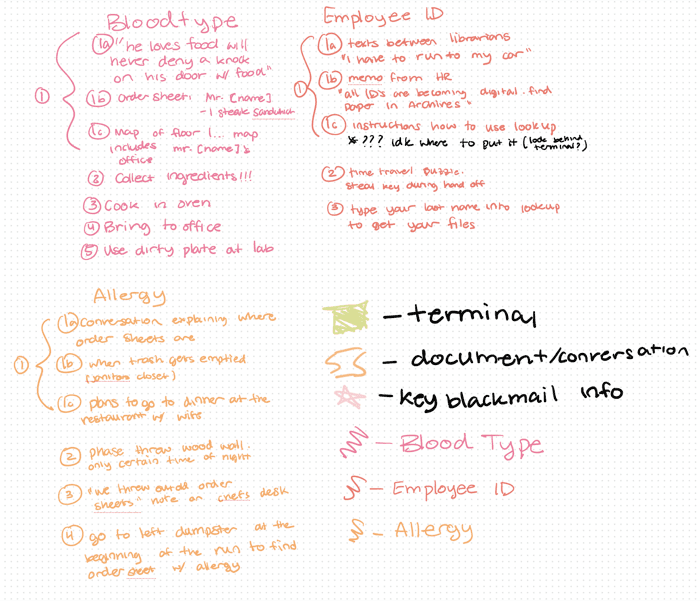 Bloodtype
1a "he loves food will
never deny a knock
on his door w/ food"
1
1b order sheet: Mr. [name]
- 1 steak sandwich
1c Map of floor 1... map
includes mr. [name]'s
office
2 Collect ingredients!!!
3 Cook in oven
4 Bring to office
5 Use dirty plate at lab
Employee ID
1a texts between librarians
"I have to run to my car"
1
1b memo from HR
"all ID's are becoming digital. find
paper in Archives"
1c instructions how to use lookup
* ??? idk where to put it (look behind
terminal?)
2 time travel puzzle.
steal key during hand off
3 type your last name into lookup
to get your files
Allergy
1a Conversation explaining where
order sheets are
1
1b when trash gets emptied
(janitors closet)
1c plans to go to dinner at the
restaurant w/ wife
2 phase threw wood wall.
only certain time of night
3 "we threw out all order
sheets" note on chefs desk
4 go to left dumpster at the
beginning of the run to find
order sheet w/ allergy
- terminal
- document/conversation
- key blackmail info
- Blood Type
- Employee ID
- Allergy